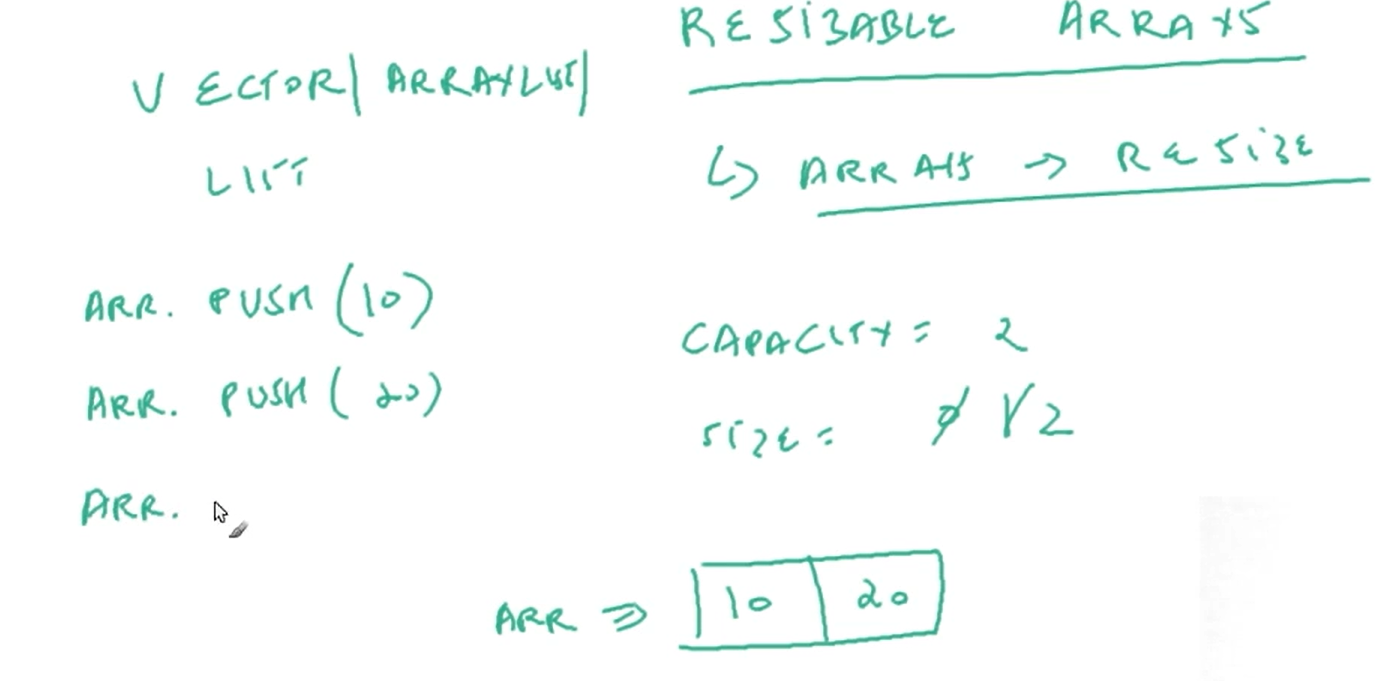 RESIZABLE ARRAYS
VECTOR/ ARRAYLIST/
LIST
↳ ARRAYS → RESIZE
ARR. PUSH (10)
ARR. PUSH ( 20)
ARR.
CAPACITY = 2
SIZE = 0 1 2
ARR ⇒ 10 20